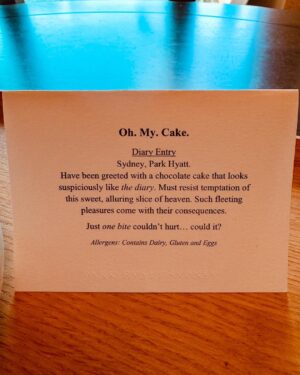 Oh. My. Cake.
Diary Entry
Sydney, Park Hyatt.
Have been greeted with a chocolate cake that looks
suspiciously like the diary. Must resist temptation of
this sweet, alluring slice of heaven. Such fleeting
pleasures come with their consequences.
Just one bite couldn't hurt… could it?
Allergens: Contains Dairy, Gluten and Eggs